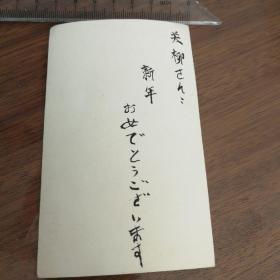 美柳さんに
新年
おめでとうございます